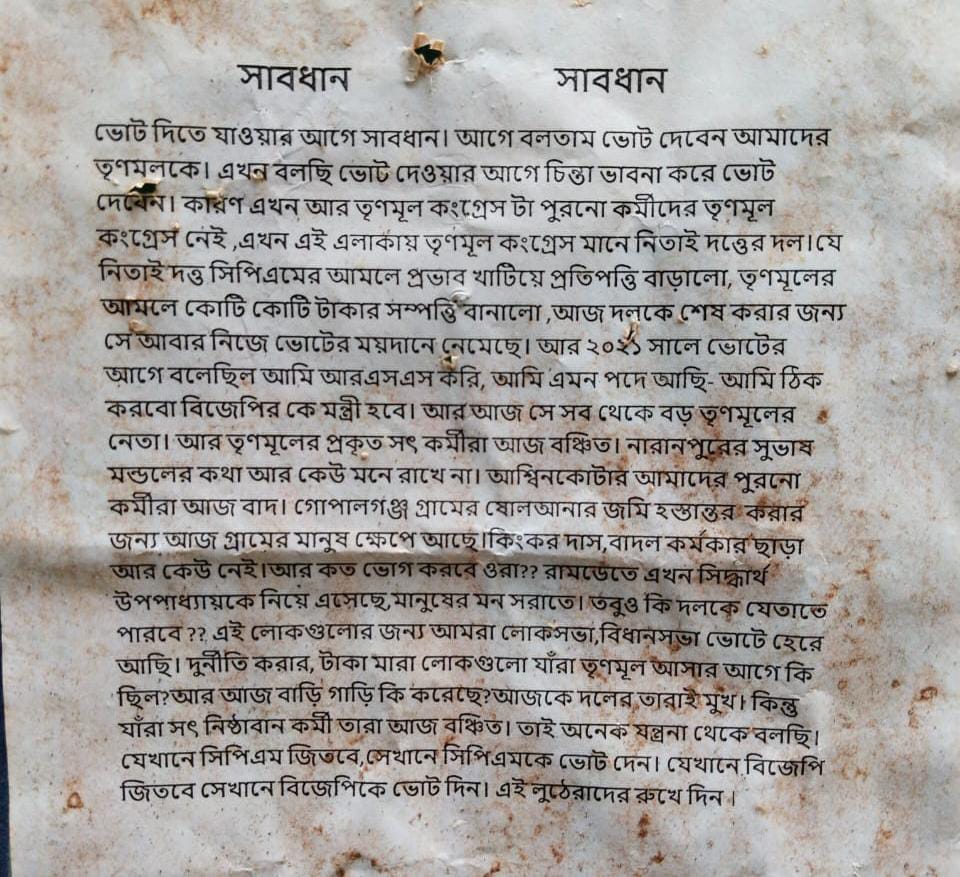 সাবধান সাবধান
ভোট দিতে যাওয়ার আগে সাবধান। আগে বলতাম ভোট দেবেন আমাদের
তৃণমূলকে। এখন বলছি ভোট দেওয়ার আগে চিন্তা ভাবনা করে ভোট
দেবেন। কারণ এখন আর তৃণমূল কংগ্রেস টা পুরনো কর্মীদের তৃণমূল
কংগ্রেস নেই ,এখন এই এলাকায় তৃণমূল কংগ্রেস মানে নিতাই দত্তের দল।যে
নিতাই দত্ত সিপিএমের আমলে প্রভাব খাটিয়ে প্রতিপত্তি বাড়ালো, তৃণমূলের
আমলে কোটি কোটি টাকার সম্পত্তি বানালো ,আজ দলকে শেষ করার জন্য
সে আবার নিজে ভোটের ময়দানে নেমেছে। আর ২০২১ সালে ভোটের
আগে বলেছিল আমি আরএসএস করি, আমি এমন পদে আছি- আমি ঠিক
করবো বিজেপির কে মন্ত্রী হবে। আর আজ সে সব থেকে বড় তৃণমূলের
নেতা। আর তৃণমূলের প্রকৃত সৎ কর্মীরা আজ বঞ্চিত। নারানপুরের সুভাষ
মন্ডলের কথা আর কেউ মনে রাখে না। আশ্বিনকোটার আমাদের পুরনো
কর্মীরা আজ বাদ। গোপালগঞ্জ গ্রামের ষোলআনার জমি হস্তান্তর করার
জন্য আজ গ্রামের মানুষ ক্ষেপে আছে।কিংকর দাস,বাদল কর্মকার ছাড়া
আর কেউ নেই।আর কত ভোগ করবে ওরা?? রামডেতে এখন সিদ্ধার্থ
উপপাধ্যায়কে নিয়ে এসেছে,মানুষের মন সরাতে। তবুও কি দলকে যেতাতে
পারবে ?? এই লোকগুলোর জন্য আমরা লোকসভা,বিধানসভা ভোটে হেরে
আছি। দুর্নীতি করার, টাকা মারা লোকগুলো যাঁরা তৃণমূল আসার আগে কি
ছিল?আর আজ বাড়ি গাড়ি কি করেছে?আজকে দলের তারাই মুখ। কিন্তু
যাঁরা সৎ নিষ্ঠাবান কর্মী তারা আজ বঞ্চিত। তাই অনেক যন্ত্রনা থেকে বলছি।
যেখানে সিপিএম জিতবে,সেখানে সিপিএমকে ভোট দেন। যেখানে বিজেপি
জিতবে সেখানে বিজেপিকে ভোট দিন। এই লুঠেরাদের রুখে দিন ।